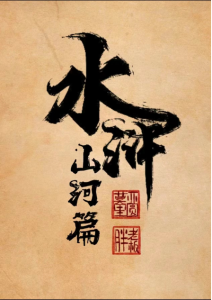 水浒
山河篇